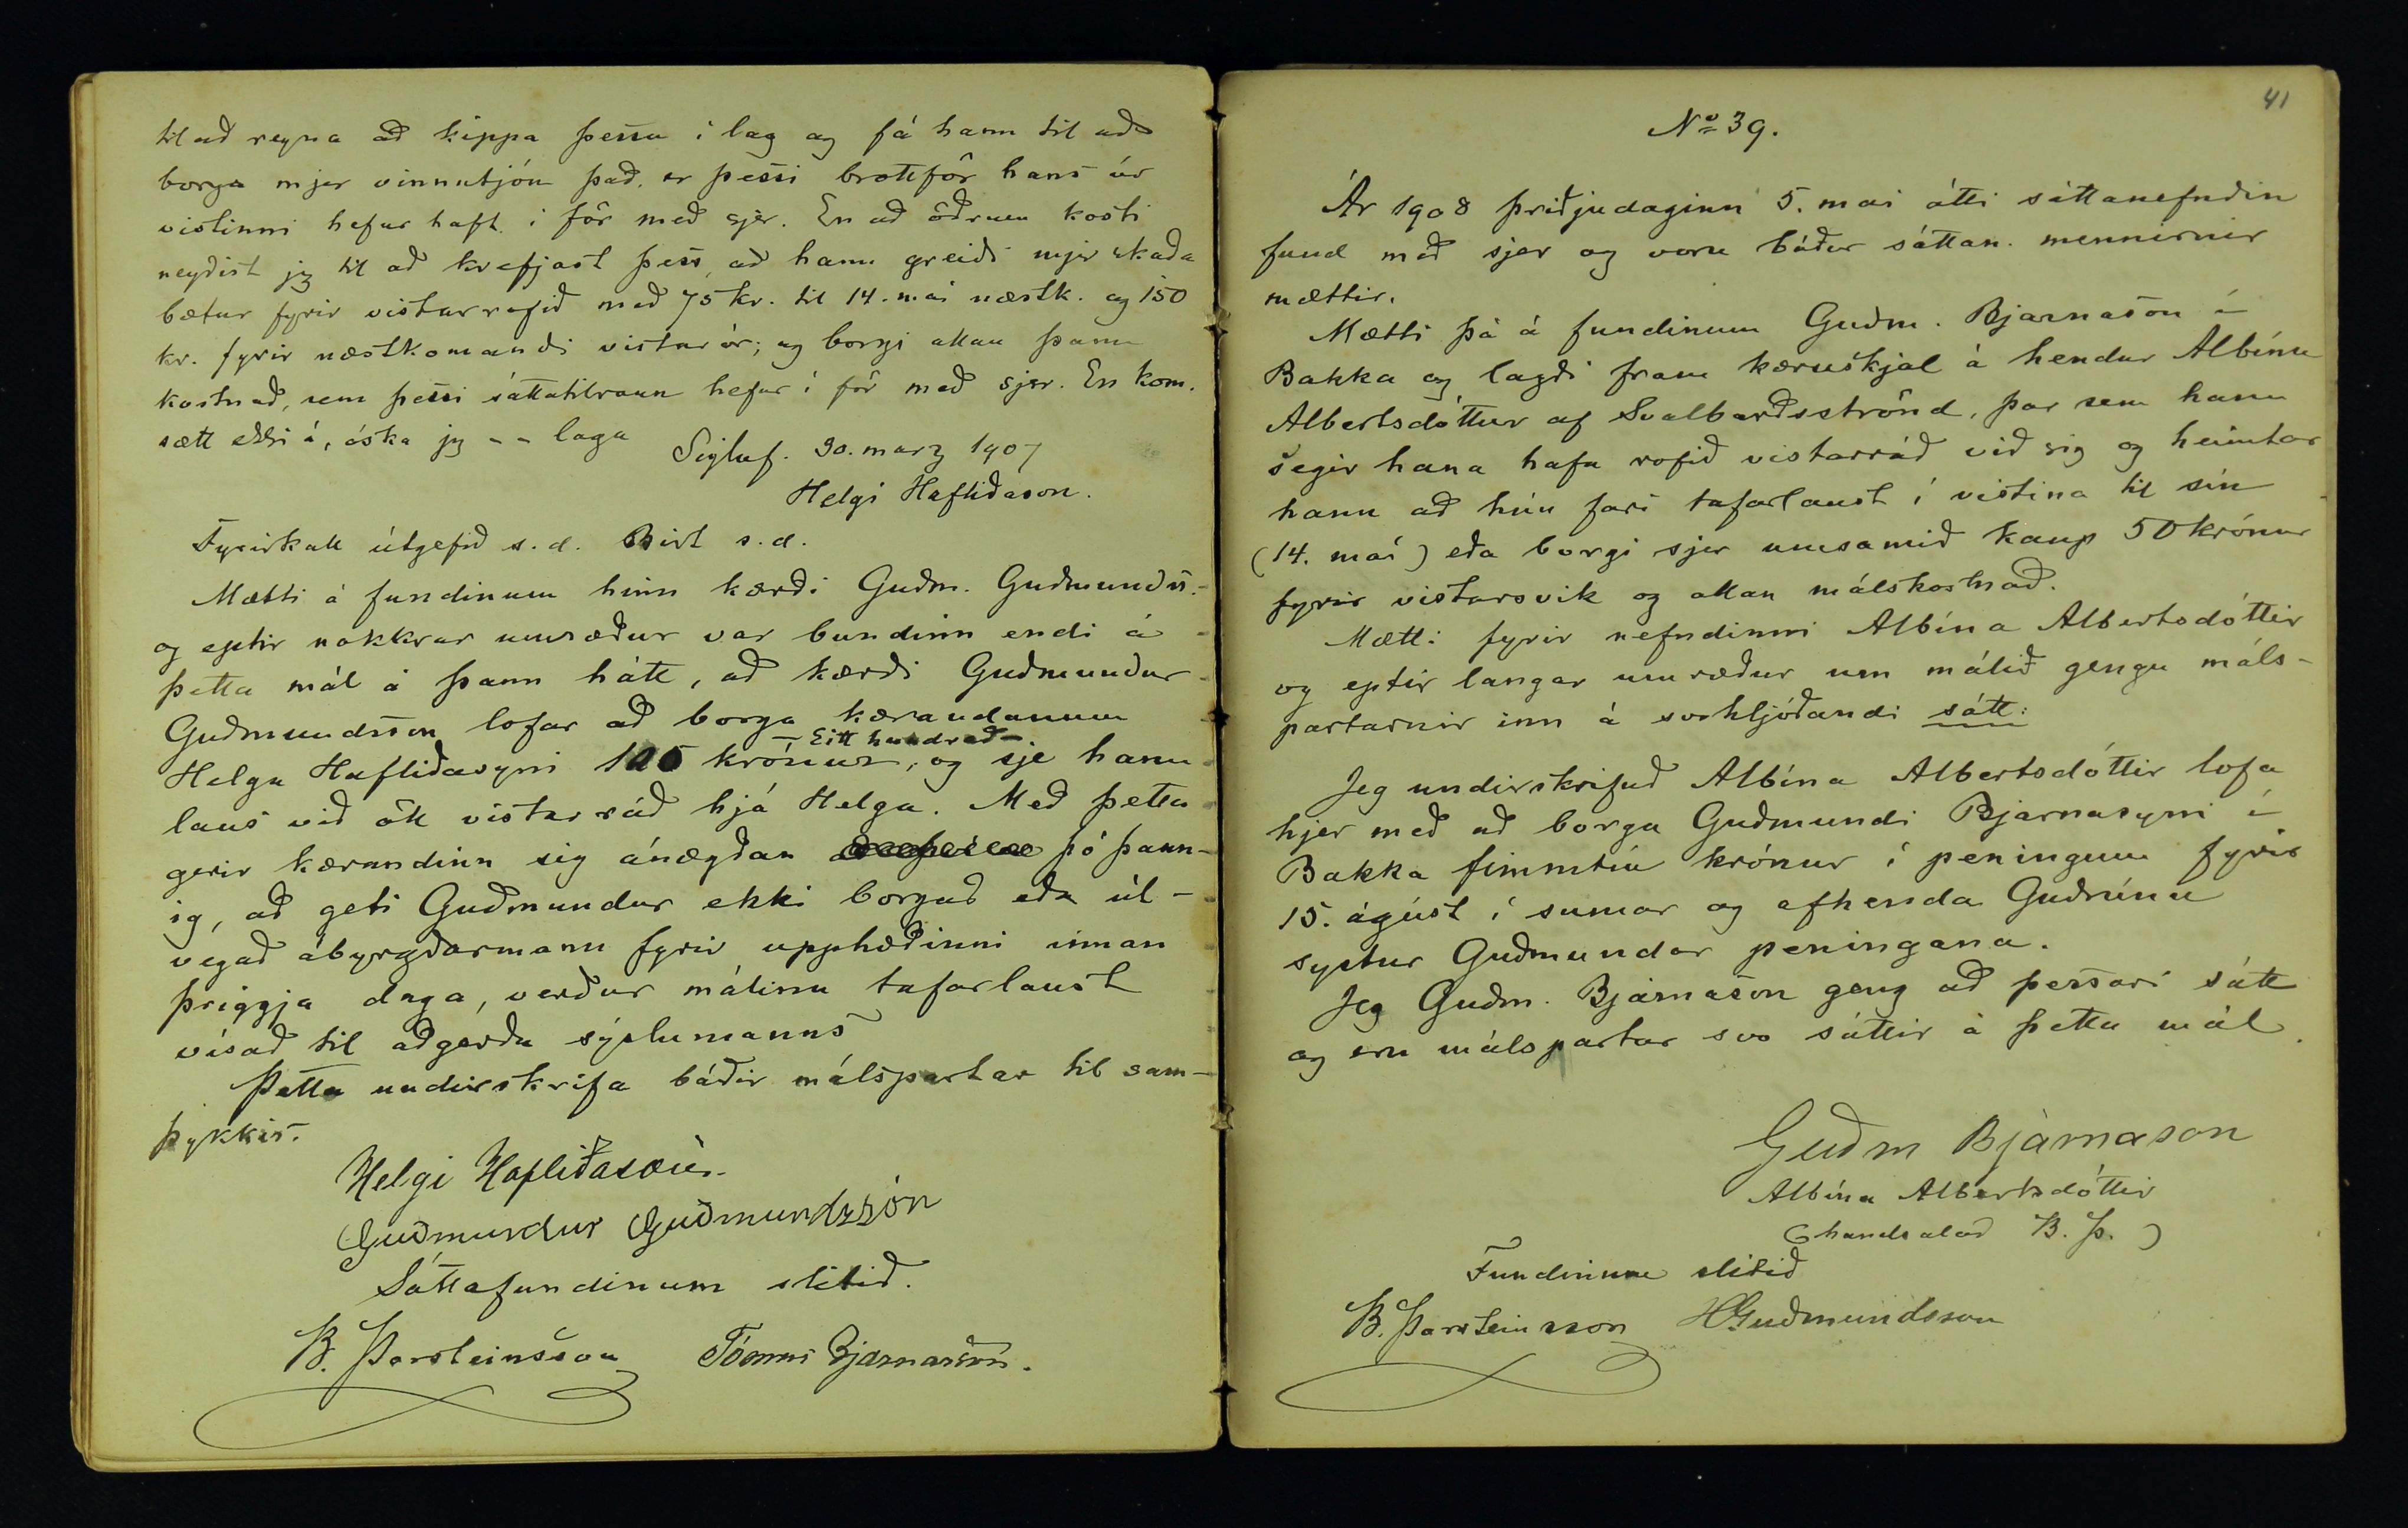 til að reyna að kippa þessu í lag og fá hann til að
borga mjer vinnutjón það, er þessi brottför hans úr
vistinni hefur haft í för með sjer. En að öðrum kosti
neyðist jeg til að krefjast þess, að hann greiði mjer skaða
bætur fyrir vistarrofið með 75 kr. til 14. mai næstk. og 150
kr. fyrir næstkomandi vistarár; og borgi allan þann
kostnað, sem þessi sáttatilraun hefur í för með sjer. En kom.
sætt ekki á, óska jeg -- laga
Sigluf. 30. marz 1907
Helgi Hafliðason.
Fyrirkall útgefið s. d. Birt s. d.
Mætti á fundinum hinn kærði Guðm. Guðmundss.
og eptir nokkrar umræður var bundinn endi á
þetta mál á þann hátt, að kærði Guðmundur
Guðmundsson lofar að borga kærandanum
- Eitt hundrað -
Helga Hafliðasyni 100 krónur, og sje hann
laus við öll vistarráð hjá Helga. Með þetta
gerir kærandinn sig ánægðan þó þann-
ig, að geti Guðmundur ekki borgað eða út-
vegað ábyrgðarmann fyrir upphæðinni innan
þriggja daga, verður málinu tafarlaust
vísað til aðgerða sýslumanns
Þetta undirskrifa báðir málspartar til sam-
þykkis.
Helgi Hafliðason.
Guðmundur Guðmundsson
Sáttafundinum slitið.
B. Þorsteinsson Tómas Bjarnason.
41
No 39.
Ár 1908 þriðjudaginn 5. mai átti sáttanefndin
fund með sjer og voru báður sáttan. mennirnir
mættir.
Mætti þá á fundinum Guðm. Bjarnason í
Bakka og lagði fram kæruskjal á hendur Albínu
Albertsdóttur af Svalbarðsströnd, þar sem hann
segir hana hafa rofið vistarráð við sig og heimtar
hann að hún fari tafarlaust í vistina til sín
(14. maí) eða borgi sjer umsamið kaup 50 krónur
fyrir vistarsvik og allan málskostnað.
Mætti fyrir nefndinni Albína Albertsdóttir
og eptir langar umræður um málið gengu máls-
partarnir inn á svohljóðandi sátt:
Jeg undirskrifuð Albína Albertsdóttir lofa
hjer með að borga Guðmundi Bjarnasyni í
Bakka fimmtíu krónur í peningum fyrir
15. ágúst í sumar og afhenda Guðrúnu
systur Guðmundar peningana.
Jeg Guðm. Bjarnason geng að þessari sátt
og eru málspartar svo sáttir á þetta mál.
Guðm Bjarnason
Albína Albertsdóttir
(handsalað B. Þ.)
Fundinum slitið
B. Þorsteinsson HGuðmundsson